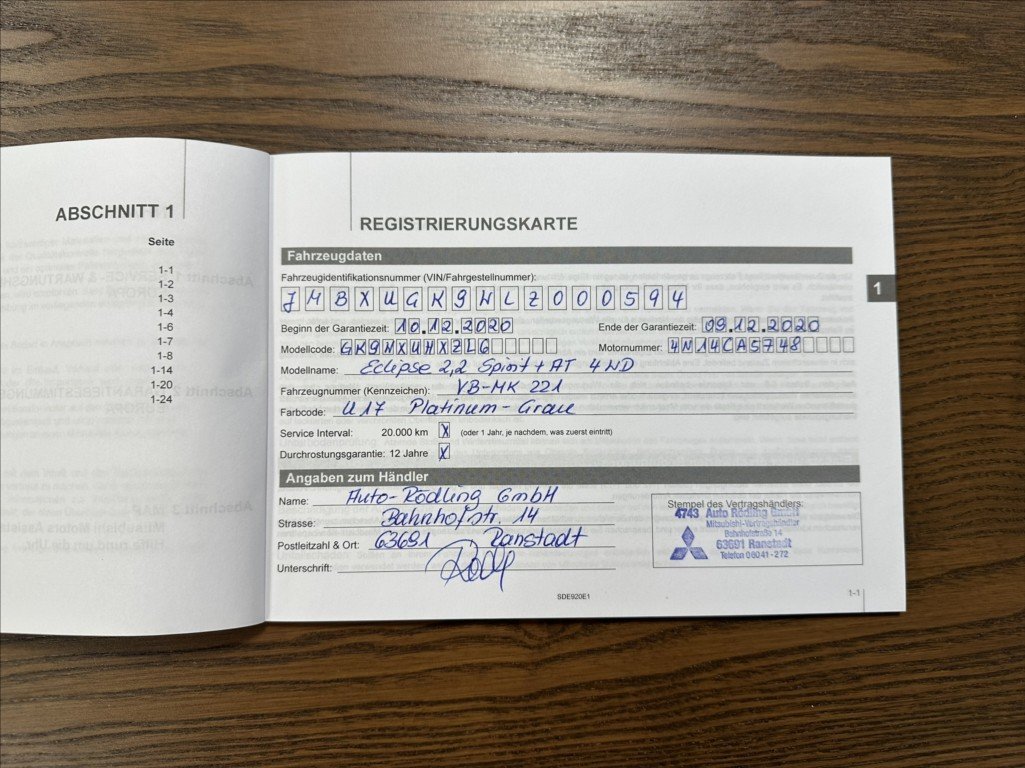 ABSCHNITT 1
Seite
1-1
1-2
1-3
1-4
1-6
1-7
1-8
1-14
1-20
1-24
REGISTRIERUNGSKARTE
Fahrzeugdaten
Fahrzeugidentifikationsnummer (VIN/Fahrgestellnummer):
JMBXUGK9WLZ000594
Beginn der Garantiezeit: 10.12.2020 Ende der Garantiezeit: 09.12.2020
Modellcode: GK9WXUHXZL6 Motornummer: 4N14CA5748
Modellname: Eclipse 2,2 Spirit + AT 4WD
Fahrzeugnummer (Kennzeichen): VB-MK 221
Farbcode: U17 Platinum-Graue
Service Interval: 20.000 km X (oder 1 Jahr, je nachdem, was zuerst eintritt)
Durchrostungsgarantie: 12 Jahre X
Angaben zum Händler
Name: Auto-Rödling GmbH
Strasse: Bahnhofstr. 14
Postleitzahl & Ort: 63691 Ranstadt
Unterschrift:
Stempel des Vertragshändlers:
4743 Auto Rödling GmbH
Mitsubishi-Vertragshändler
Bahnhofstraße 14
63691 Ranstadt
Telefon 06041-272
SDE920E1
1-1
1